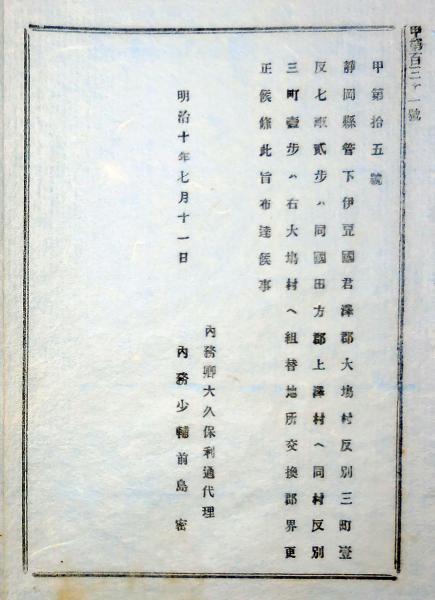 甲第百三十一號
甲第拾五號
靜岡縣管下伊豆國君澤郡大塲村反別三町壹
反七畝貳步ハ同國田方郡上澤村ヘ同村反別
三町壹步ハ右大塲村ヘ組替地所交換郡界更
正候條此旨布達候事
明治十年七月十一日
內務卿大久保利通代理
內務少輔前島密